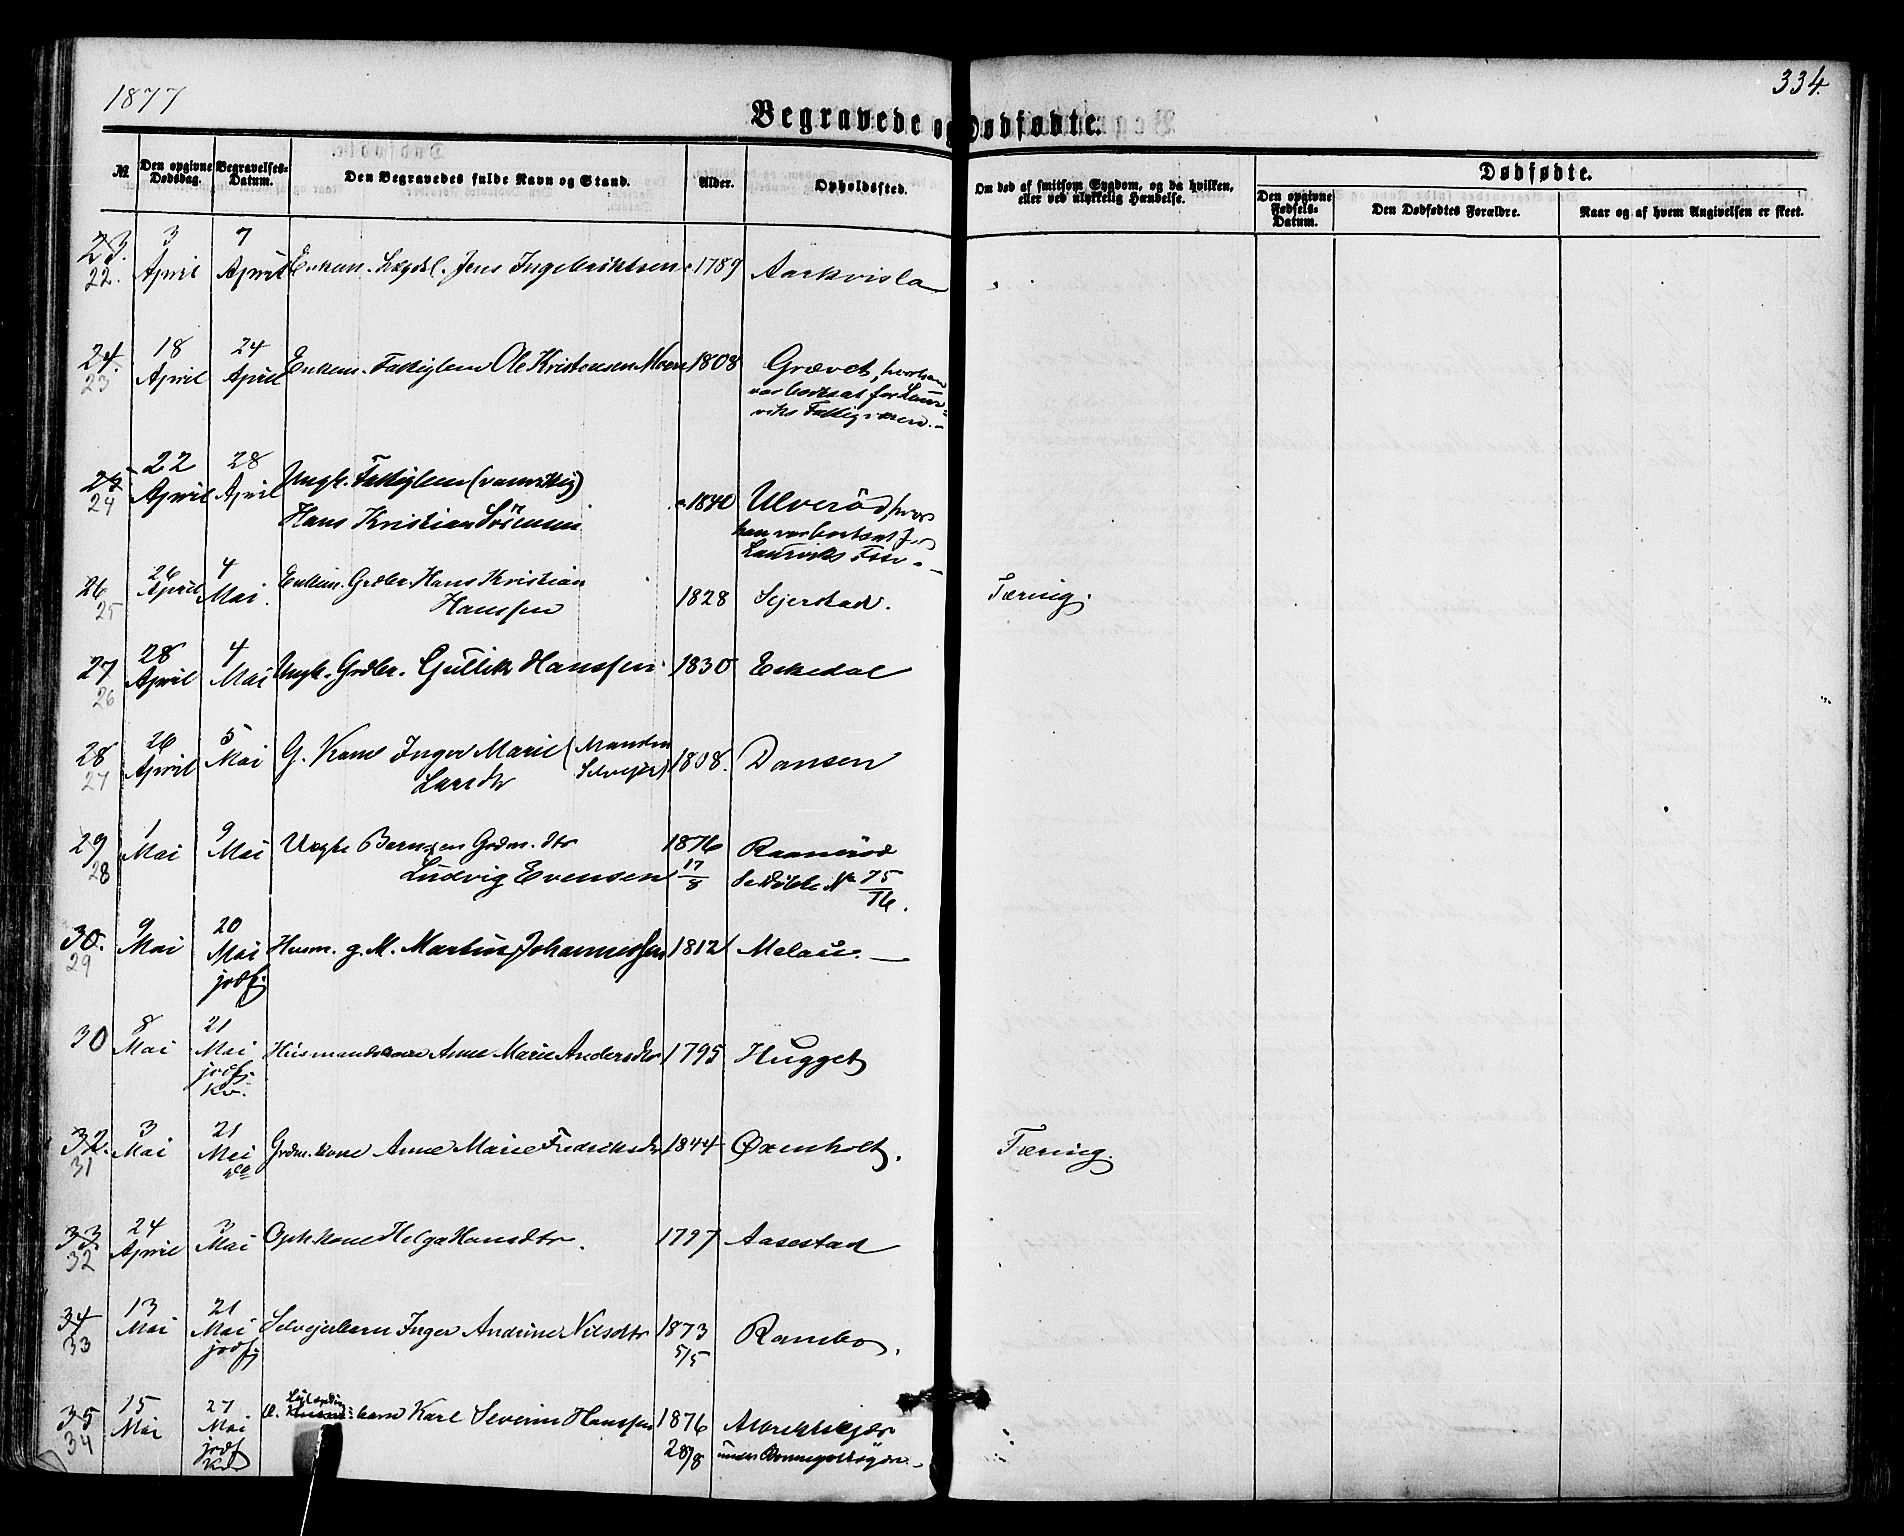 1877
334.
Begravede og Dødfødte.
№
Den opgivne Dødsdag.
Begravelses-Datum.
Den Begravedes fulde Navn og Stand.
Alder.
Opholdssted.
Om død af smitsom Sygdom, og da hvilken, eller ved ulykkelig Hændelse.
Dødfødte.
Den opgivne Fødsels-Datum.
Den Dødfødtes Forældre.
Naar og af hvem Angivelsen er skeet.
23. 22. 3 April 7 April Enkem. Lægdsl. Jens Ingebriktsen 1789 Aarkvisla
24. 23 18 April 24 April Enkem. Fattiglem Ole Kristensen Moen 1808 Grævet, hvor han
var bortsat for Laur-
viks Fattigvæsen. -
25 24 22 April 28 April Ungk. Fattiglem (vanvittig)
Hans Kristian Sörensen 1840 Ulveröd, hvor
han var bortsat for
Laurviks
26 25 26 April 4 Mai Enkem. Grdbr. Hans Kristian
Hanssen 1828 Sjerstad. Tæring.
27 26 28 April 4 Mai Ungk. Grdbr. Gullik Hanssen 1830 Eikedal
28 27 26 April 5 Mai G. Kone Inger Marie (Manden
Larsdtr Selveier) 1808. Dansen
29 28 1 Mai 9 Mai Barn, en Grdm.
Ludvig Evensen 1876 17/8 Raaneröd
Se Döbte № 75/76.
30. 29 9 Mai 20 Mai jrdf. Husm. g. M. Martius Johannessen 1812 Melau. —
30 8 Mai 21 Mai jrdf. Kv. Husmandskone Anne Marie Andersdtr 1795 Hugget
32. 31 3 Mai 21 Mai Grdm. kone Anne Marie Fredriksdtr 1844 Øxenholt. Tæring.
33. 32 24 April 3 Mai kone Helga Hansdtr. 1797 Aasestad
34 33 13 Mai 21 Mai jrdf Selveierbarn Inger Andrine Nilsdtr 1873 5/5 Rambo.
35 34 15 Mai 27 Mai jrdf Kv barn Karl Severin Hanssen 1876 28/8
under